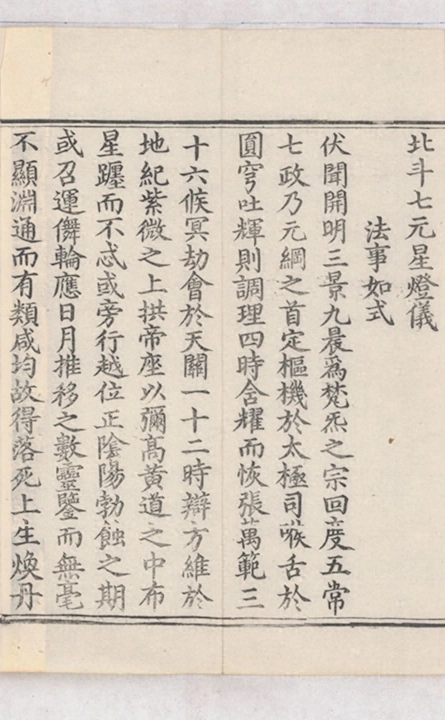 北斗七元星燈儀
法事如式
伏聞開明三景九晨爲梵炁之宗回度五常
七政乃元綱之首定樞機於太極司喉舌於
圓穹吐輝則調理四時含耀而恢張萬範三
十六候冥劫會於天關一十二時辯方維於
地紀紫微之上拱帝座以彌高黃道之中布
星躔而不忒或旁行越位正陰陽勃蝕之期
或召運儛輪應日月推移之數靈鑒而無毫
不顯淵通而有類咸均故得落死上生煥丹